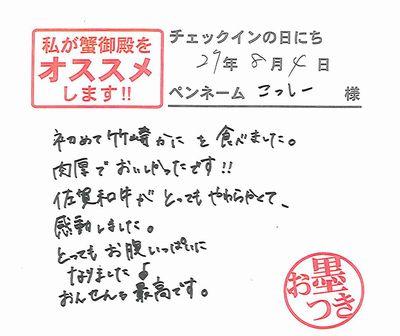 私が蟹御殿を
オススメ
します!!
チェックインの日にち
29年8月4日
ペンネーム こっしー 様
初めて竹崎かにを食べました。
肉厚でおいしかったです!!
佐賀和牛がとってもやわらかくて、
感動しました。
とってもお腹いっぱいに
なりました♪
おんせんも最高です。
お墨
つき